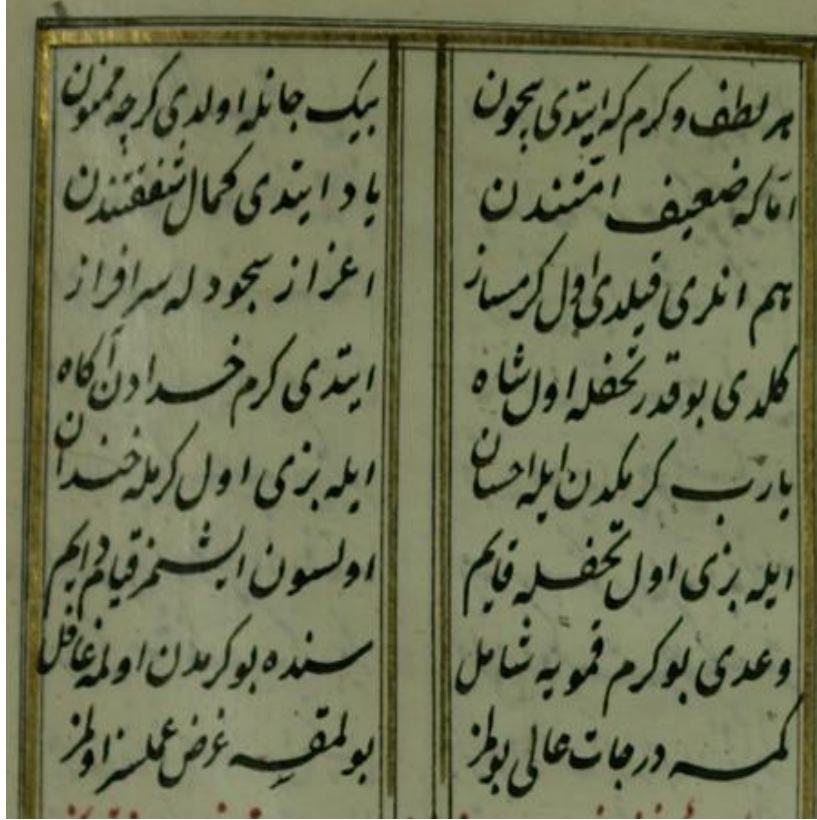 هر لطف و كرم كه ايتدى بيچون
بيك جانله اولدى كرچه ممنون
امّا كه ضعيف امّتندن
ياد ايتدى كمال شفقتندن
هم انلرى قيلدى اول كرمساز
اعزاز سجود له سرافراز
كلدى بو قدر تحفله اول شاه
ايتدى كرم خدادن آكاه
يارب كرمكدن ايله احسان
ايله بزى اول كرمله خندان
ايله بزى اول تحفله قايم
اولسون ايشمز قيام دايم
وعدى بو كرم قمويه شامل
سنده بو كرمدن اولمه غافل
كمسه درجات عالى بولمز
بولمقسه غرض عملسز اولمز